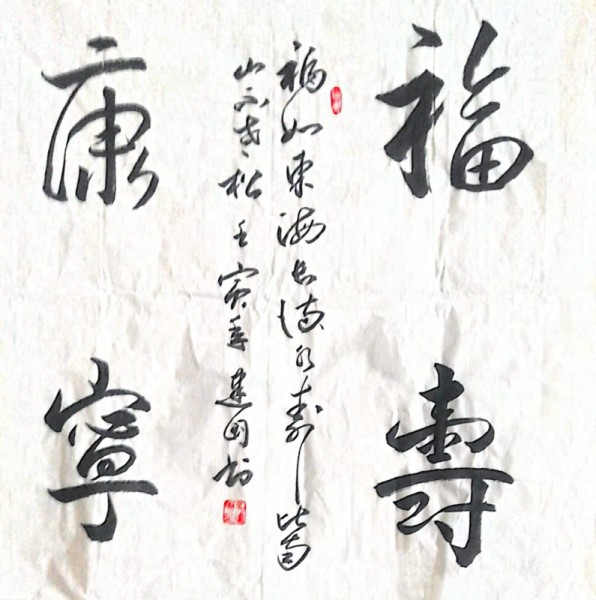 福壽
康寧
福如東海長流水壽比南
山不老松 壬寅年 建国书